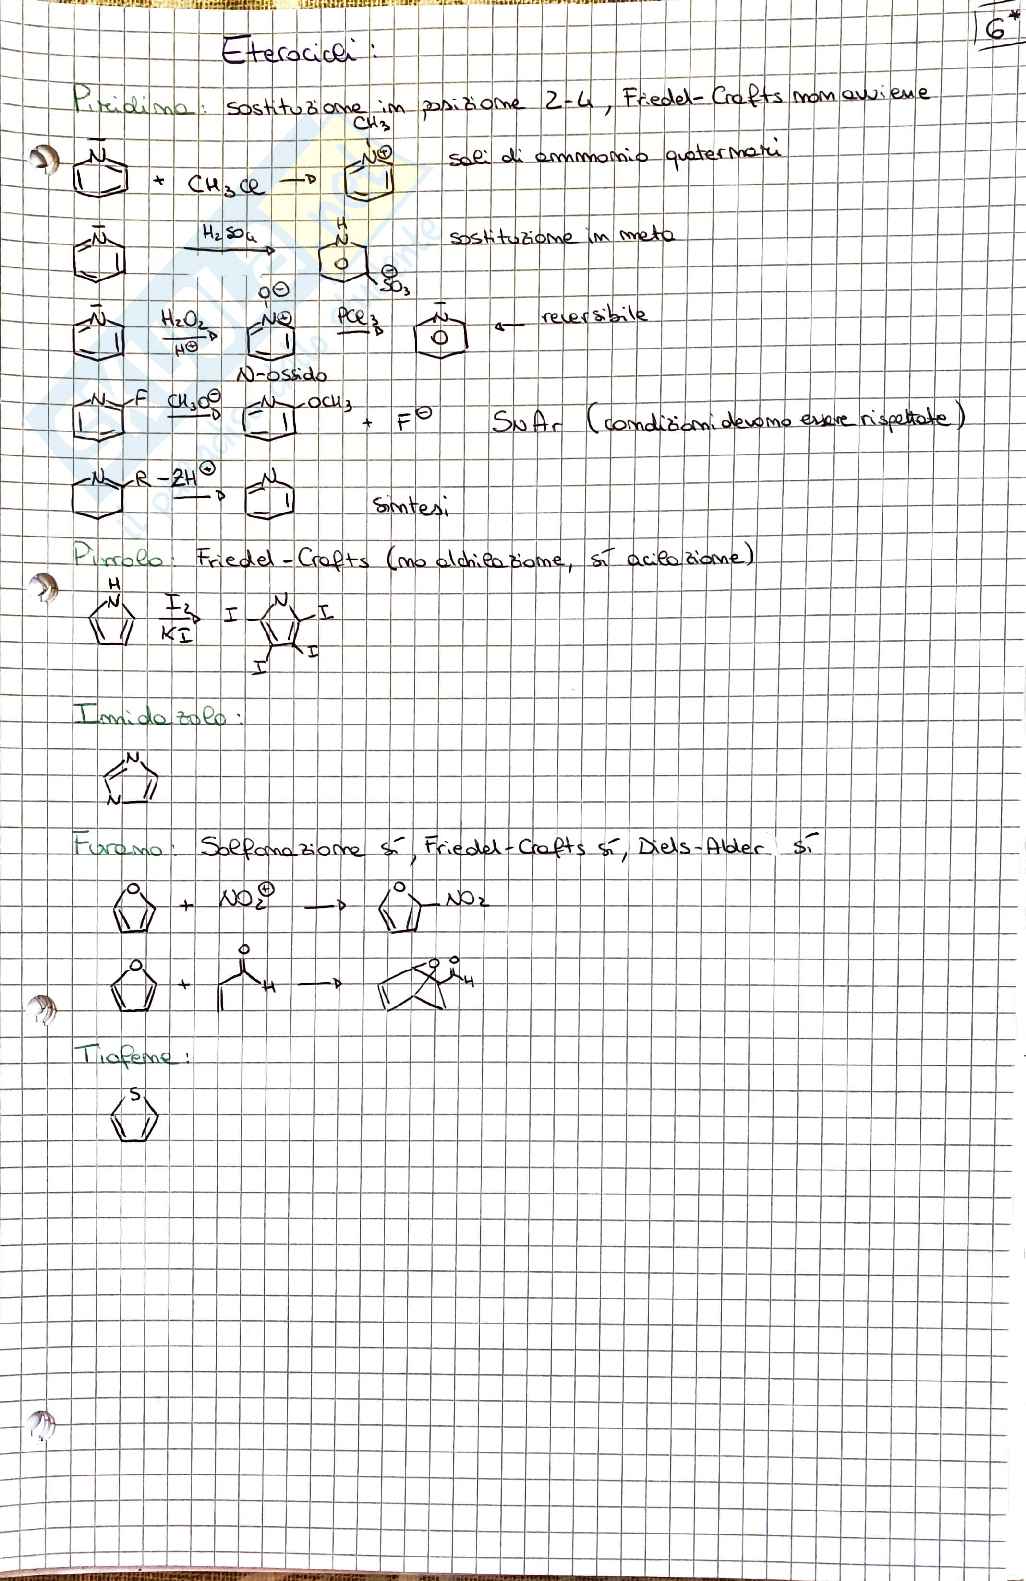 6*
Eterocicli:
Piridina: sostituzione in posizione 2-4, Friedel-Crafts non avviene
CH3
N + CH3Cl → N⊕ sali di ammonio quaternari
N H2SO4 → H N O SO3⊖ sostituzione in meta
O⊖
N H2O2 H⊕ → N⊕ PCl3 → N O ← reversibile
N-ossido
N F CH3O⊖ → N OCH3 + F⊖ SNAr (condizioni devono essere rispettate)
N R -2H⊕ → N sintesi
Pirrolo: Friedel-Crafts (no alchilazione, sì acilazione)
H
N I2 KI → I N I I I
Imidazolo:
N
N
Furano: Solfonazione sì, Friedel-Crafts sì, Diels-Alder sì
O + NO2⊕ → O NO2
O + O H → O O H
Tiofene:
S